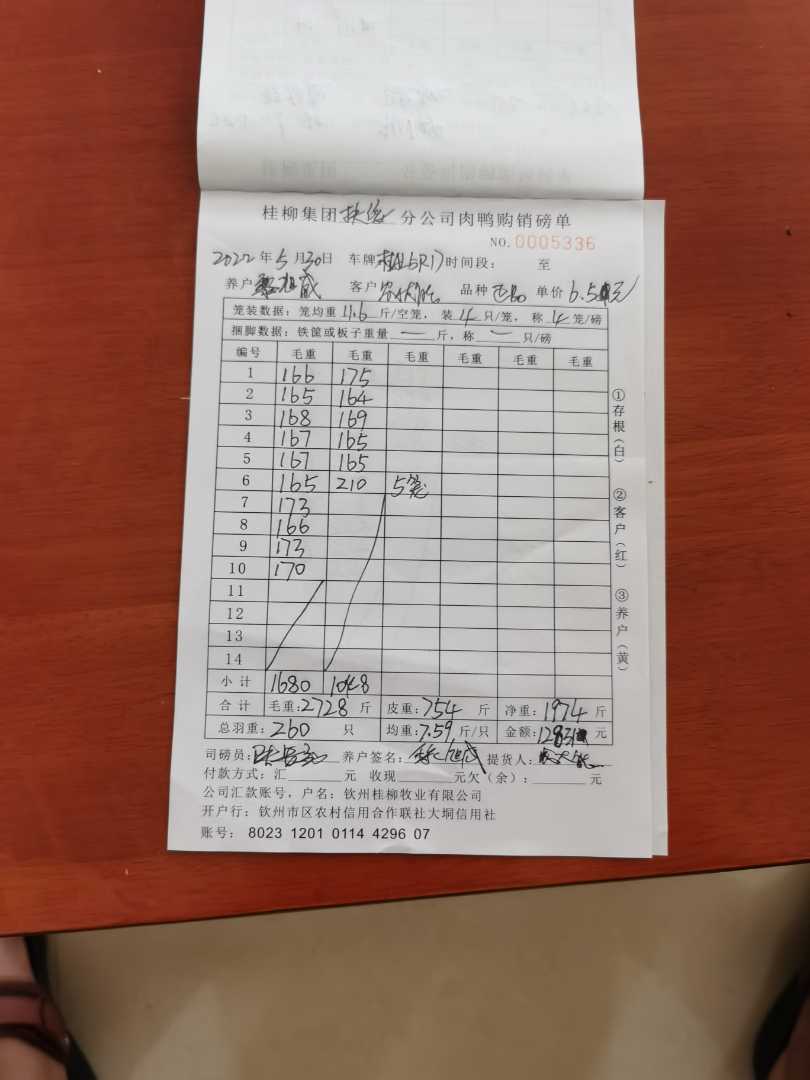 桂柳集团 分公司肉鸭购销磅单
NO.0005336
2022年5月30日 车牌 时间段: 至
养户 客户 品种 单价6.5元
笼装数据:笼均重11.6斤/空笼,装4只/笼,称4笼/磅
捆脚数据:铁筐或板子重量 — 斤,称 — 只/磅
编号 毛重 毛重 毛重 毛重 毛重 毛重
1 166 175
2 165 164
3 168 169
4 167 165
5 167 165
6 165 210 5笼
7 173
8 166
9 173
10 170
11
12
13
14
小计 1680 1048
合计 毛重:2728斤 皮重:754斤 净重:1974斤
总羽重:260只 均重:7.59斤/只 金额:12831元
司磅员: 养户签名: 提货人:
付款方式:汇 元 收现 元欠(余): 元
公司汇款账号,户名:钦州桂柳牧业有限公司
开户行:钦州市区农村信用合作联社大垌信用社
账号: 8023 1201 0114 4296 07
①存根(白)
②客户(红)
③养户(黄)